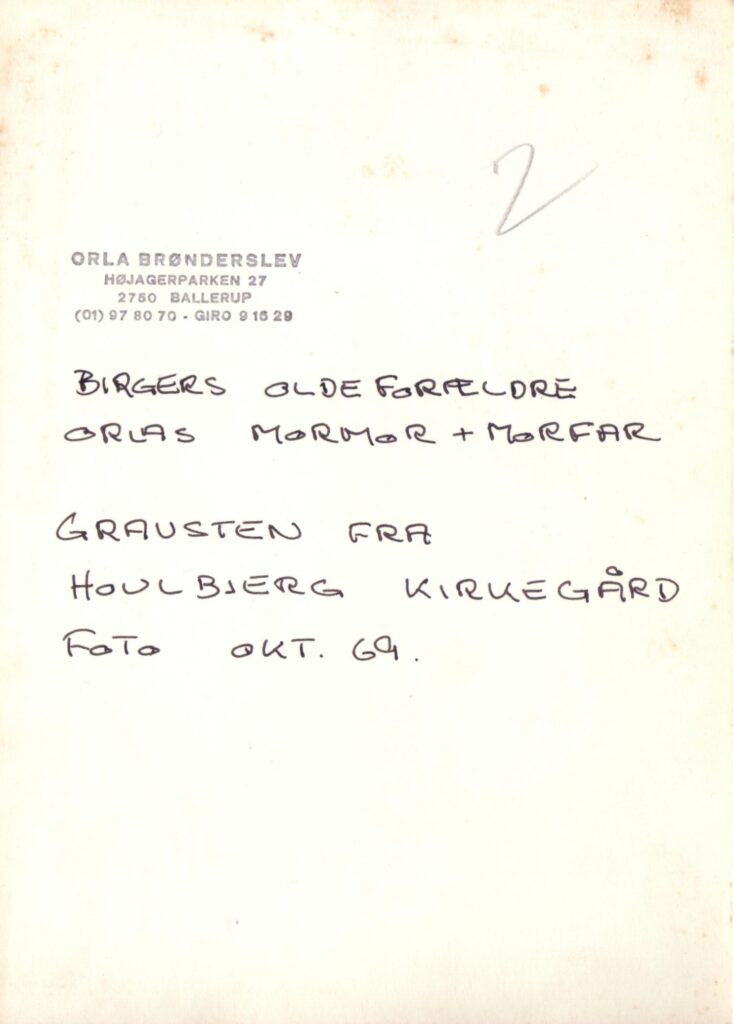 2
ORLA BRØNDERSLEV
HØJAGERPARKEN 27
2750 BALLERUP
(01) 97 80 70 - GIRO 9 16 29
BIRGERS OLDEFORÆLDRE
ORLAS MORMOR + MORFAR
GRAVSTEN FRA
HOULBJERG KIRKEGÅRD
FOTO OKT. 69.